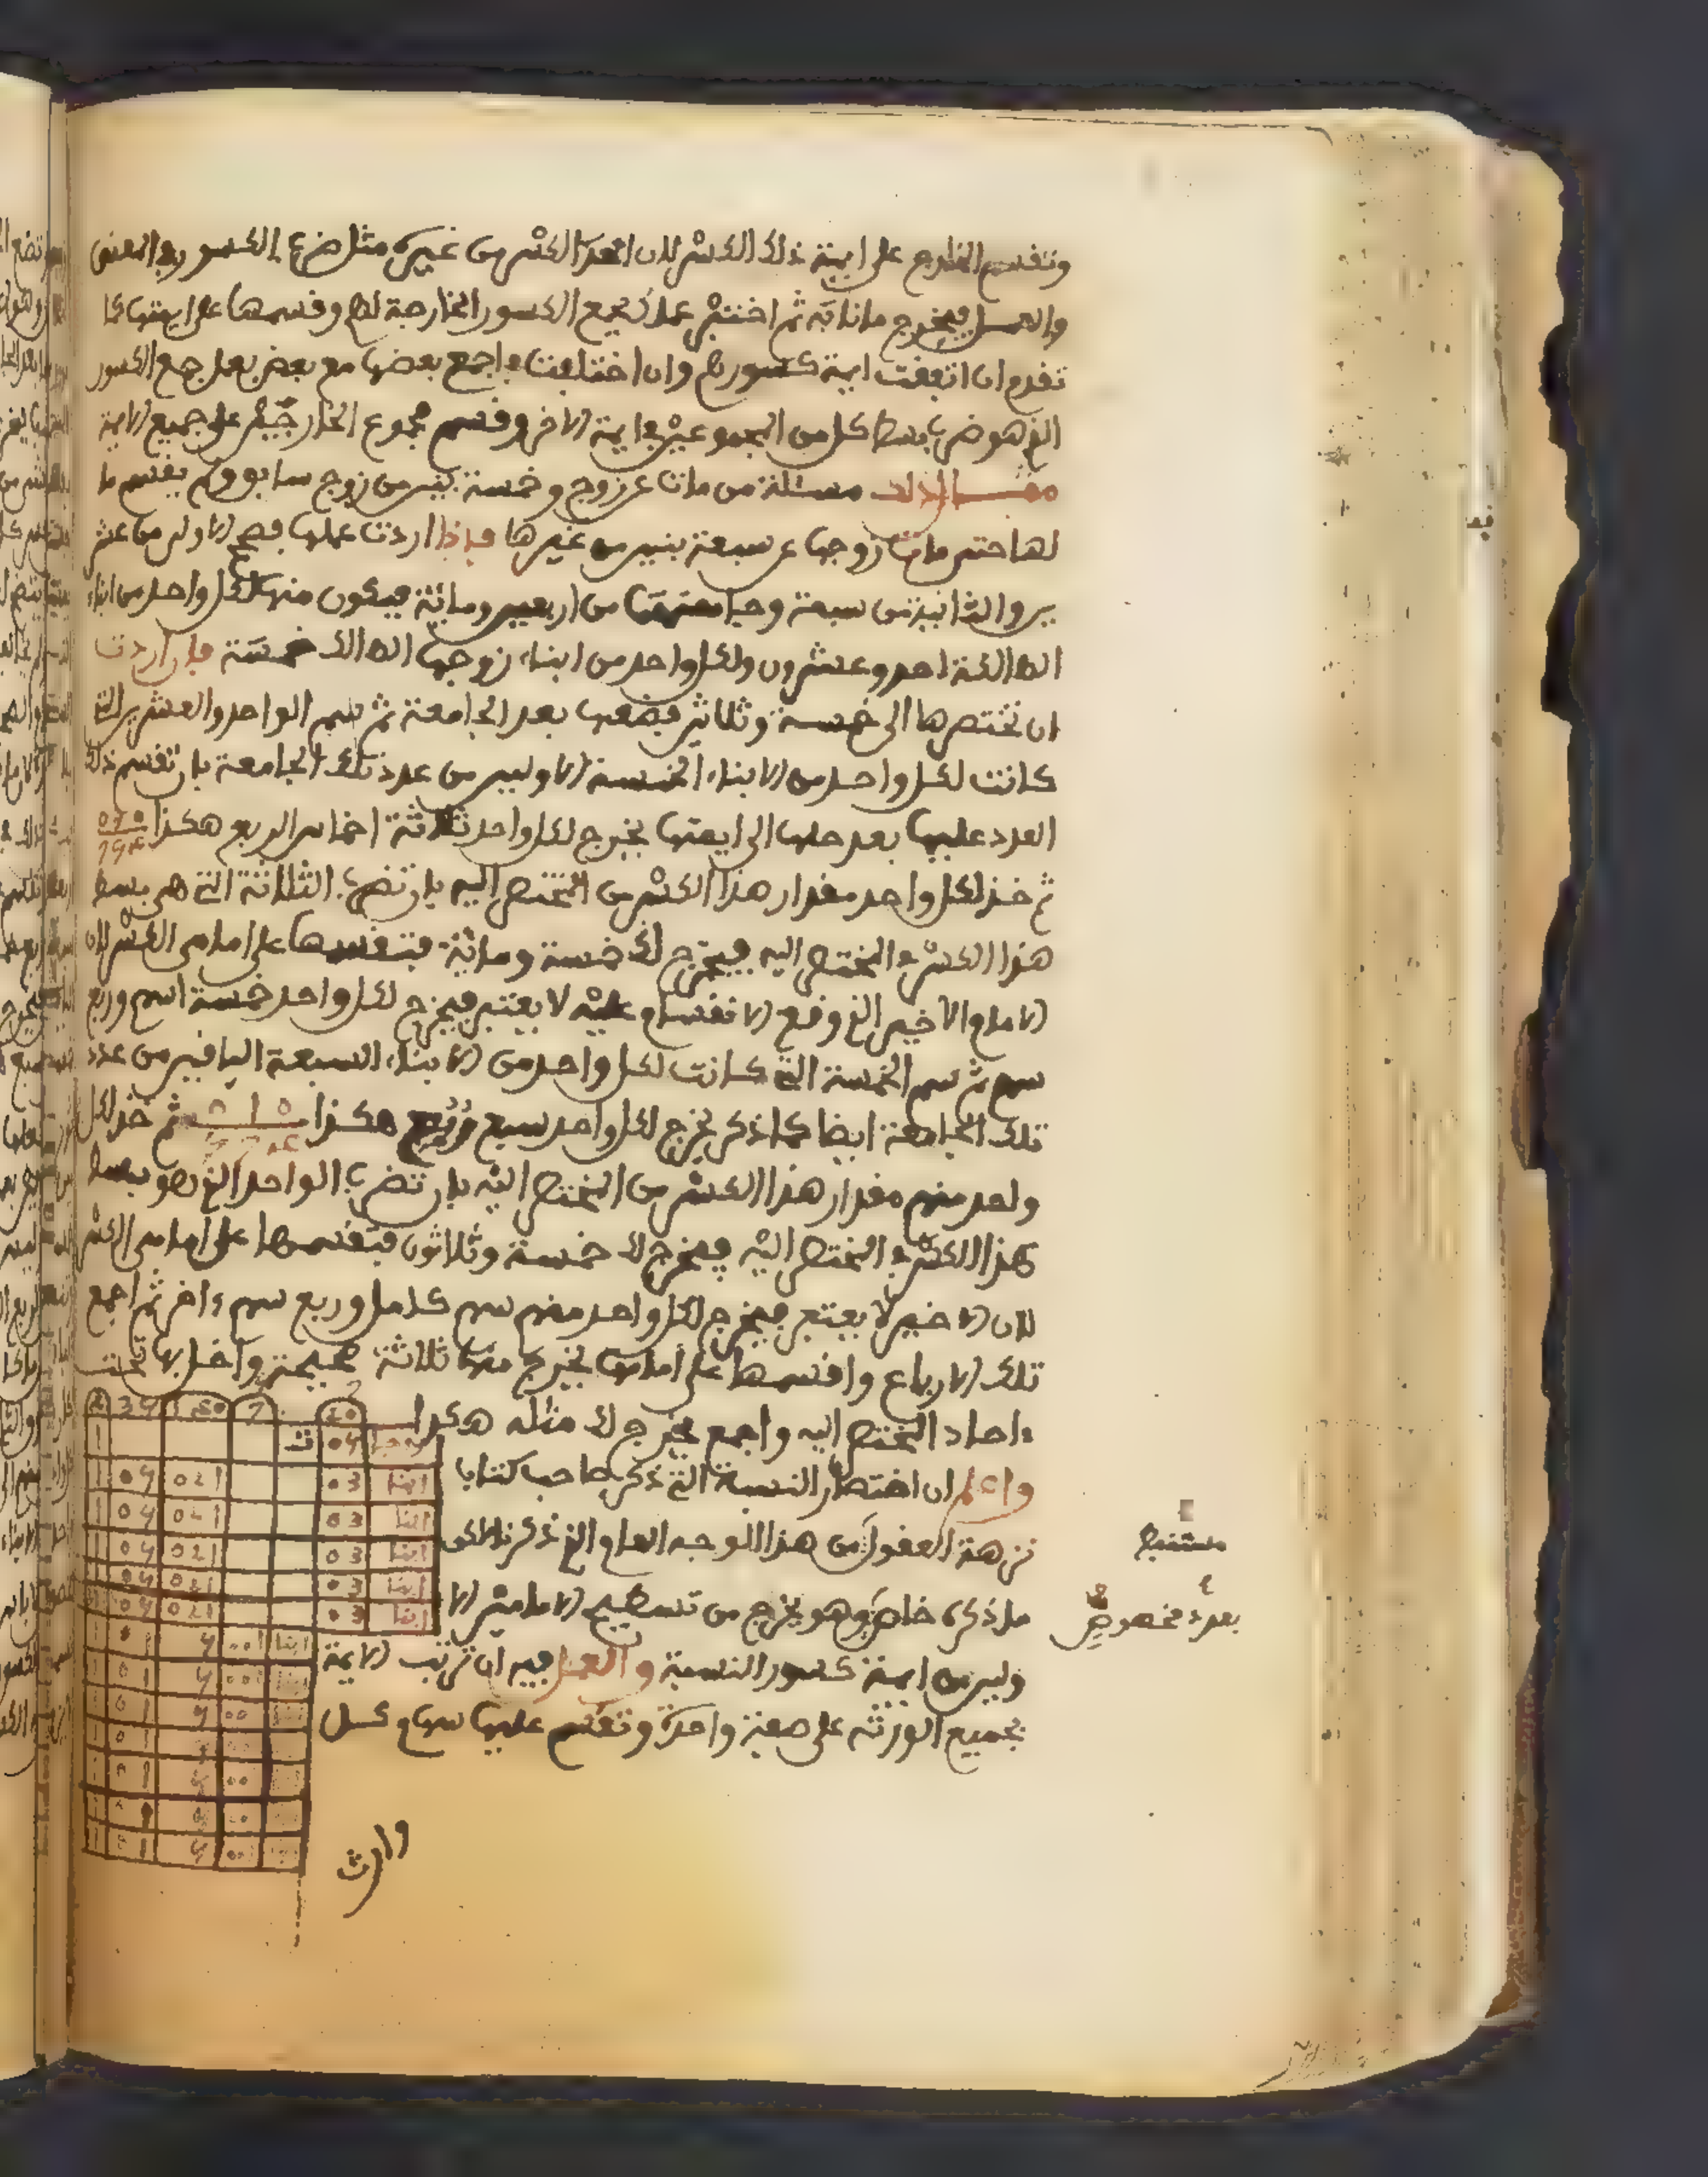 وتقسم الخارج على ايمة ذلك الكسر لان اخذ الكسر من غيره مثل ضرب الكسور في المعنى
والعمل فيخرج ما نابه ثم اختبر عملك بجمع الكسور الخارجة لهم وقسمها على ايمتها كما
تقدم ان اتفقت ايمة كسورهم وان اختلفت فاجمع بعضها مع بعض بعمل جمع الكسور
الذي هو ضرب بسط كل من المجموعين في ايمة الاخر وقسم مجموع الخارجين على جميع الايمة
مثال ذلك مسئلة من ماتت عن زوج وخمسة بنين من زوج سابق ولم يقسم ما
لها حتى مات زوجها عن سبعة بنين من غيرها فاذا اردت عملها فصح الاولى من عشر
ين والثانية من سبعة وجامعتهما من اربعين ومائة فيكون منها لكل واحد من ابناء
الهالكة احد وعشرون ولكل واحد من ابناء زوجها الهالك خمسة فان اردت
ان تختصرها الى خمسة وثلاثين فضعها بعد الجامعة ثم سم الواحد والعشرين التي
كانت لكل واحد من الابناء الخمسة الاولين من عدد تلك الجامعة بان تقسم ذلك
العدد عليها بعد حلها الى ايمتها يخرج لكل واحد ثلاثة اخماس الربع هكذا
ثم خذ لكل واحد مقدار هذا الكسر من المختصر اليه بان تضرب الثلاثة التي هي بسط
هذا الكسر في المختصر اليه فيخرج لك خمسة ومائة فتقسمها على امامي الكسر لان
الامام الاخير الذي وقع الانقسام عليه لا يعتبر فيخرج لكل واحد خمسة اسهم وربع
سهم ثم سم الخمسة التي كانت لكل واحد من الابناء السبعة الباقين من عدد
تلك الجامعة ايضا كما ذكر يخرج لكل واحد سبع ربع هكذا ثم خذ لكل
واحد منهم مقدار هذا الكسر من المختصر اليه بان تضرب الواحد الذي هو بسط
هذا الكسر في المختصر اليه فيخرج لك خمسة وثلاثون فتقسمها على امامي الكسر
لان الاخير لا يعتبر فيخرج لكل واحد منهم سهم كامل وربع سهم ءاخر ثم اجمع
تلك الارباع واقسمها على امامها يخرج منها ثلاثة صحيحة وادخل بها تحت
ءاحاد المختصر اليه واجمع يخرج لك مثله هكذا
واعلم ان اختصار النسبة التي ذكر صاحب كتاب
نزهة العقول من هذا الوجه العام الذي ذكرنا لكن
مستنبط
ما ذكره خاص وهو يخرج من تسطيح الامامين الا
بعدد مخصوص
ولين من ايمة كسور النسبة والعمل فيه ان ترتب الايمة
لجميع الورثة على صفة واحدة وتقسم عليها سهام كل
وارث